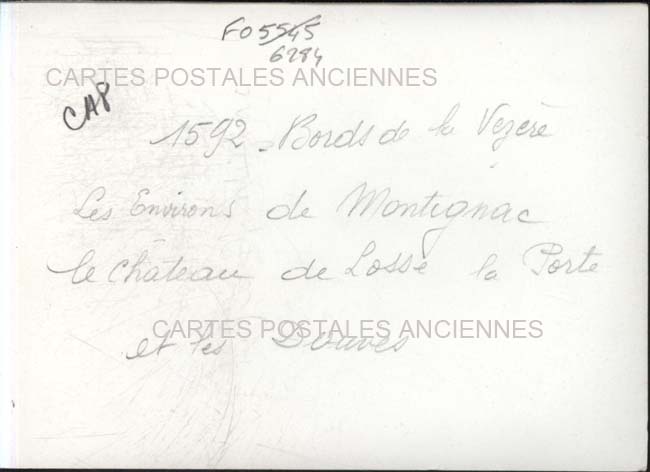 FO 5545
6284
CARTES POSTALES ANCIENNES
CAP
1592 - Bords de la Vezère
Les Environs de Montignac
le Château de Losse la Porte
CARTES POSTALES ANCIENNES
et les Douves